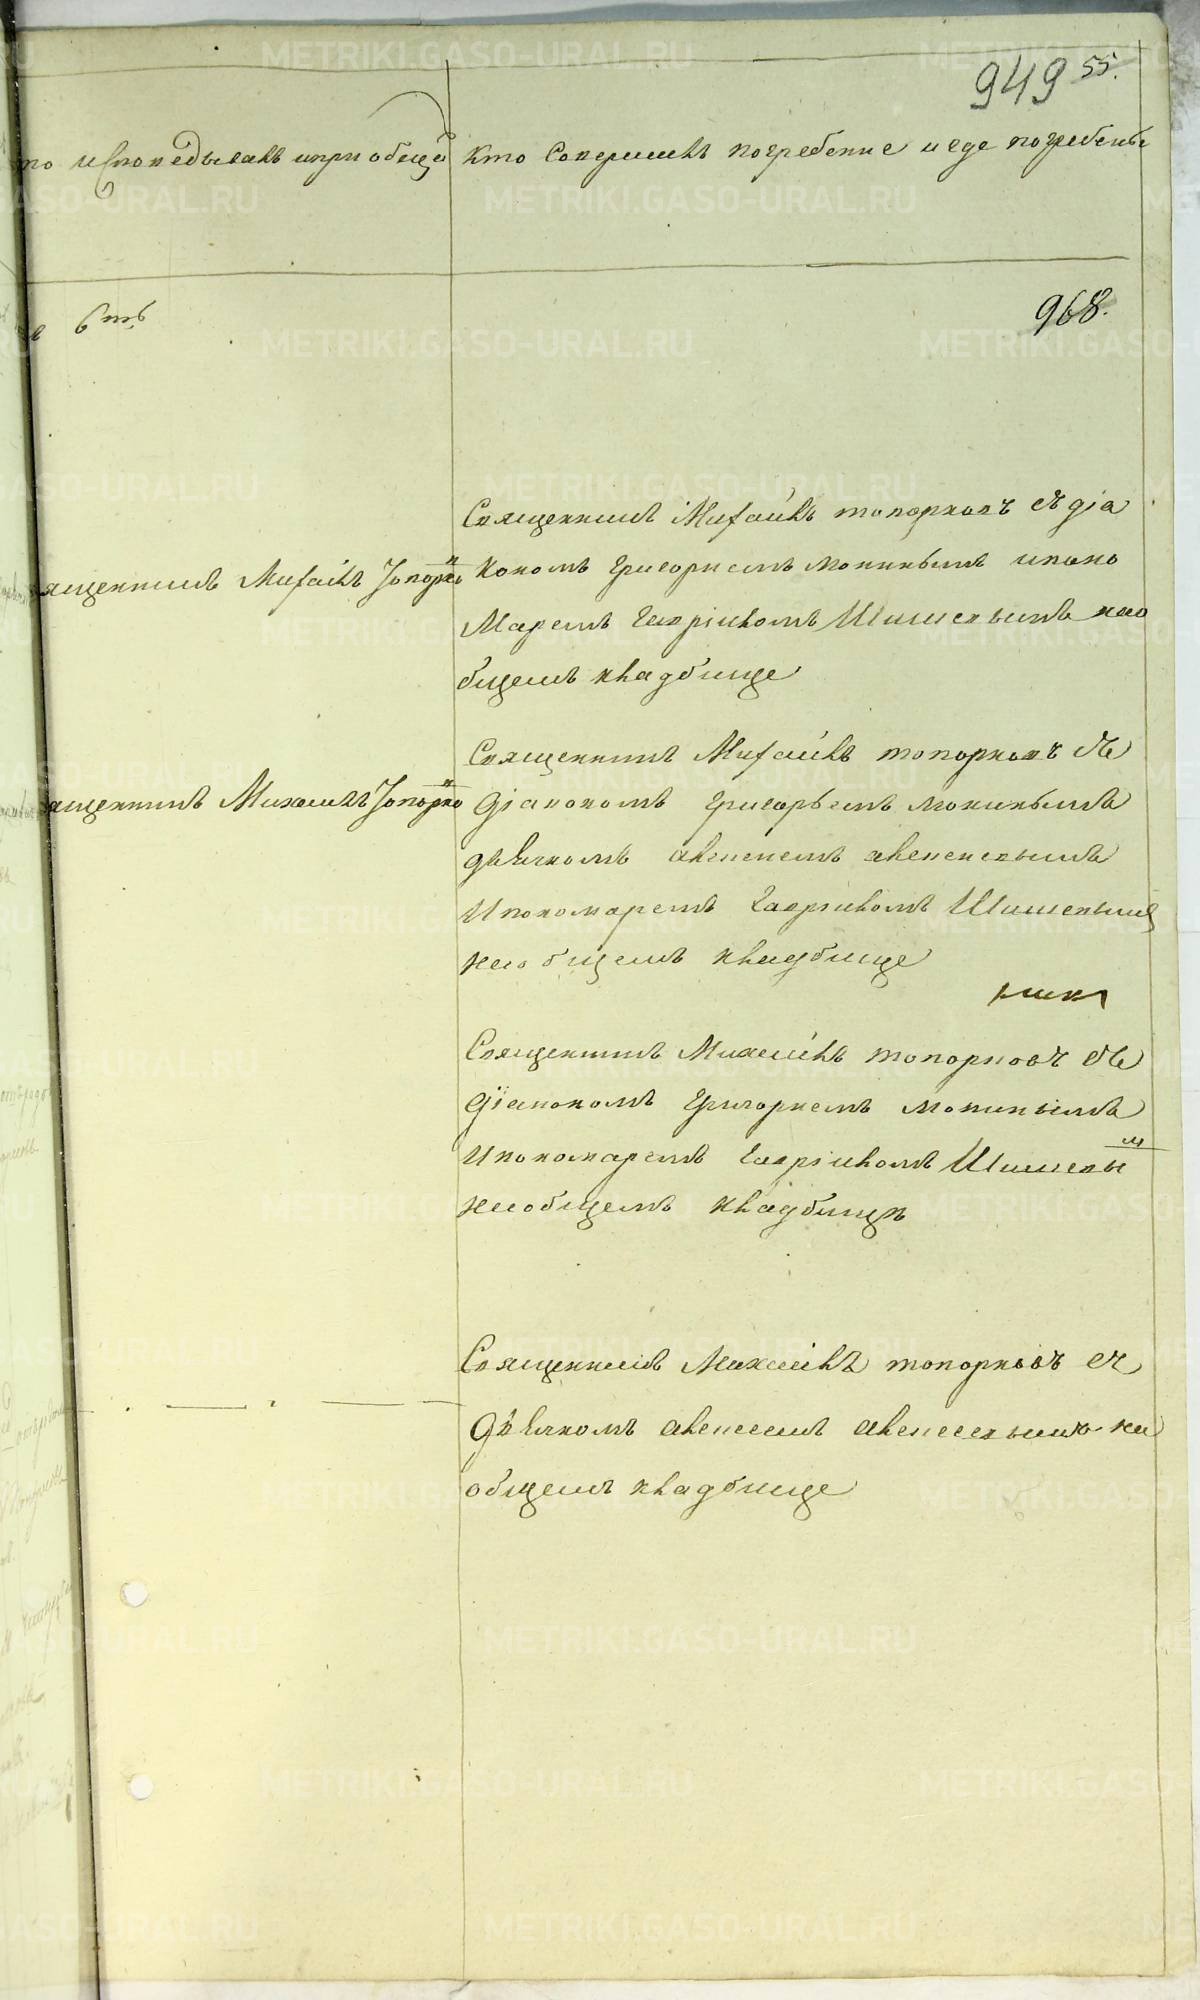 949 55.
то исповедывалъ и приобща
Кто совершилъ погребение и где погребены
968.
Священникъ Михаилъ топорковъ съ діа
кономъ Григориемъ мокинымъ и поно
Маремъ Гавріиломъ Шишевымъ на о
бщемъ кладбище
ященникъ Михаилъ Топорко в
Священникъ Михаилъ топорковъ съ
діакономъ Григорьемъ мокинымъ
дьячкомъ алексеемъ алексеевымъ
И пономаремъ Гавріиломъ Шишевымъ
на общемъ кладбище
ященникъ Михаилъ Топорко в
Священникъ Михаилъ топорковъ съ
діакономъ Григориемъ мокинымъ
И пономаремъ Гавріиломъ Шишевы м
на общемъ кладбищѣ
Священникъ Михаилъ топорковъ съ
дьячкомъ алексеемъ алексеевымъ на
общемъ кладбище
METRIKI.GASO-URAL.RU